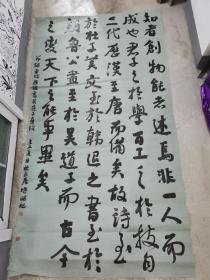 知者創物能者述焉非一人而
成也君子之於學百工之於技自
三代歷漢至唐而備矣故詩至
於杜子美文至於韓退之書至於
顏魯公畫至於吳道子而古今
之變天下之能事畢矣